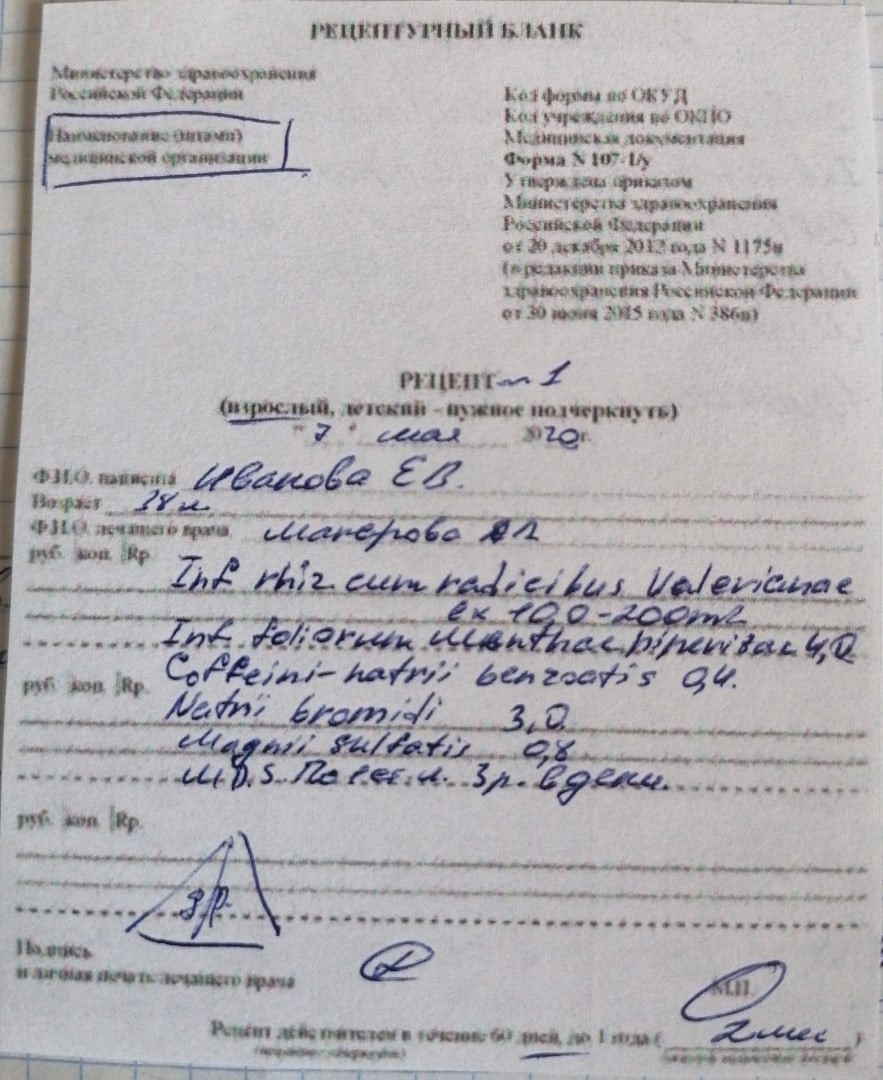 РЕЦЕПТУРНЫЙ БЛАНК
Министерство здравоохранения
Российской Федерации
Наименование (штамп)
медицинской организации
Код формы по ОКУД
Код учреждения по ОКПО
Медицинская документация
Форма N 107-1/у
Утверждена приказом
Министерства здравоохранения
Российской Федерации
от 20 декабря 2012 года N 1175н
(в редакции приказа Министерства
здравоохранения Российской Федерации
от 30 июня 2015 года N 386н)
РЕЦЕПТ 1
(взрослый, детский - нужное подчеркнуть)
" 7 " мая 2020 г.
Ф.И.О. пациента Иванова Е В.
Возраст 38 л.
Ф.И.О. лечащего врача
руб. коп. Rp. Inf rhiz. cum radicibus Valerianae
ex 10,0-200ml
Inf. foliorum Menthae piperitae 4,0
Coffeini-natrii benzoatis 0,4.
руб. коп. Rp. Natrii bromidi 3,0
Magnii sulfatis 0,8
M.D.S. По 1 ст. л. 3 р. в день.
руб. коп. Rp.
Подпись
и личная печать лечащего врача
М.П.
Рецепт действителен в течение 60 дней, до 1 года ( 2 мес )